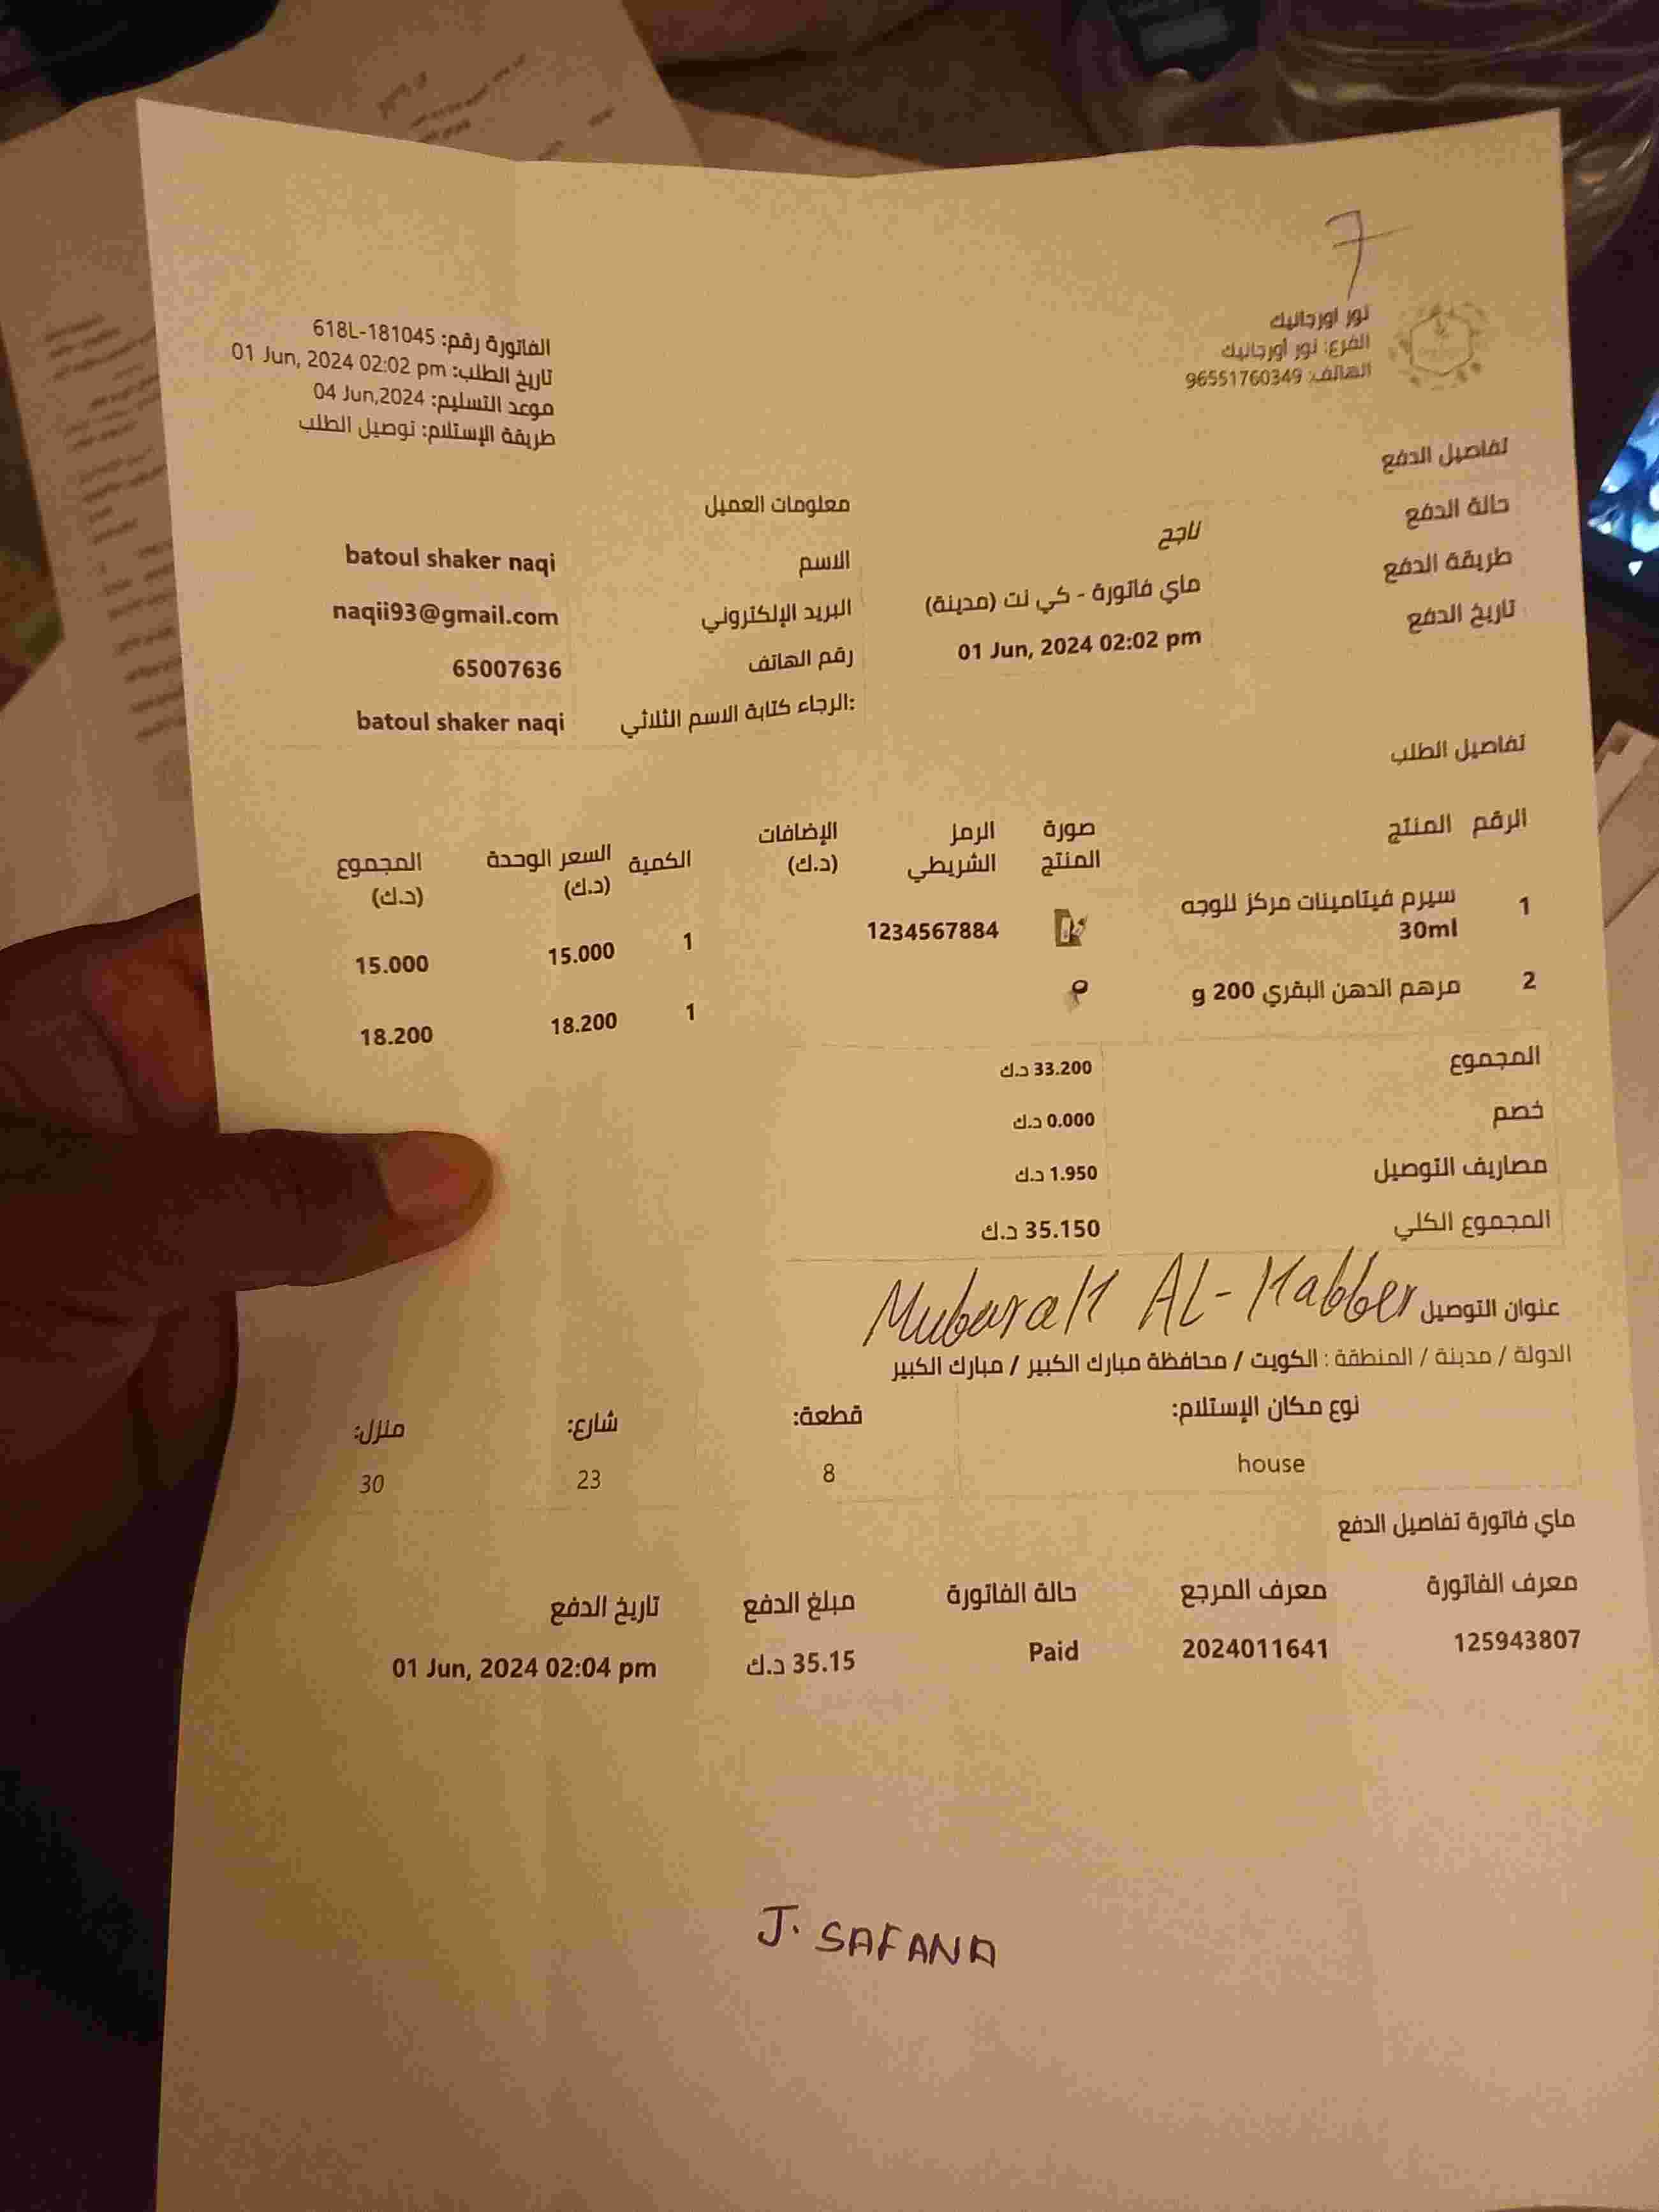 7
نور اورجانيك
الفرع: نور أورجانيك
الهاتف: 96551760349
الفاتورة رقم: 618L-181045
تاريخ الطلب: 01 Jun, 2024 02:02 pm
موعد التسليم: 04 Jun,2024
طريقة الإستلام: توصيل الطلب
تفاصيل الدفع
حالة الدفع ناجح
طريقة الدفع ماي فاتورة - كي نت (مدينة)
تاريخ الدفع 01 Jun, 2024 02:02 pm
معلومات العميل
الاسم batoul shaker naqi
البريد الإلكتروني naqii93@gmail.com
رقم الهاتف 65007636
الرجاء كتابة الاسم الثلاثي: batoul shaker naqi
تفاصيل الطلب
الرقم المنتج صورة المنتج الرمز الشريطي الإضافات (د.ك) الكمية السعر الوحدة (د.ك) المجموع (د.ك)
1 سيرم فيتامينات مركز للوجه 30ml 1234567884 1 15.000 15.000
2 مرهم الدهن البقري 200 g 1 18.200 18.200
المجموع 33.200 د.ك
خصم 0.000 د.ك
مصاريف التوصيل 1.950 د.ك
المجموع الكلي 35.150 د.ك
عنوان التوصيل Mubarak AL-Kabber
الدولة / مدينة / المنطقة : الكويت / محافظة مبارك الكبير / مبارك الكبير
نوع مكان الإستلام: قطعة: شارع: منزل:
house 8 23 30
ماي فاتورة تفاصيل الدفع
معرف الفاتورة معرف المرجع حالة الفاتورة مبلغ الدفع تاريخ الدفع
125943807 2024011641 Paid 35.15 د.ك 01 Jun, 2024 02:04 pm
J. SAFANA